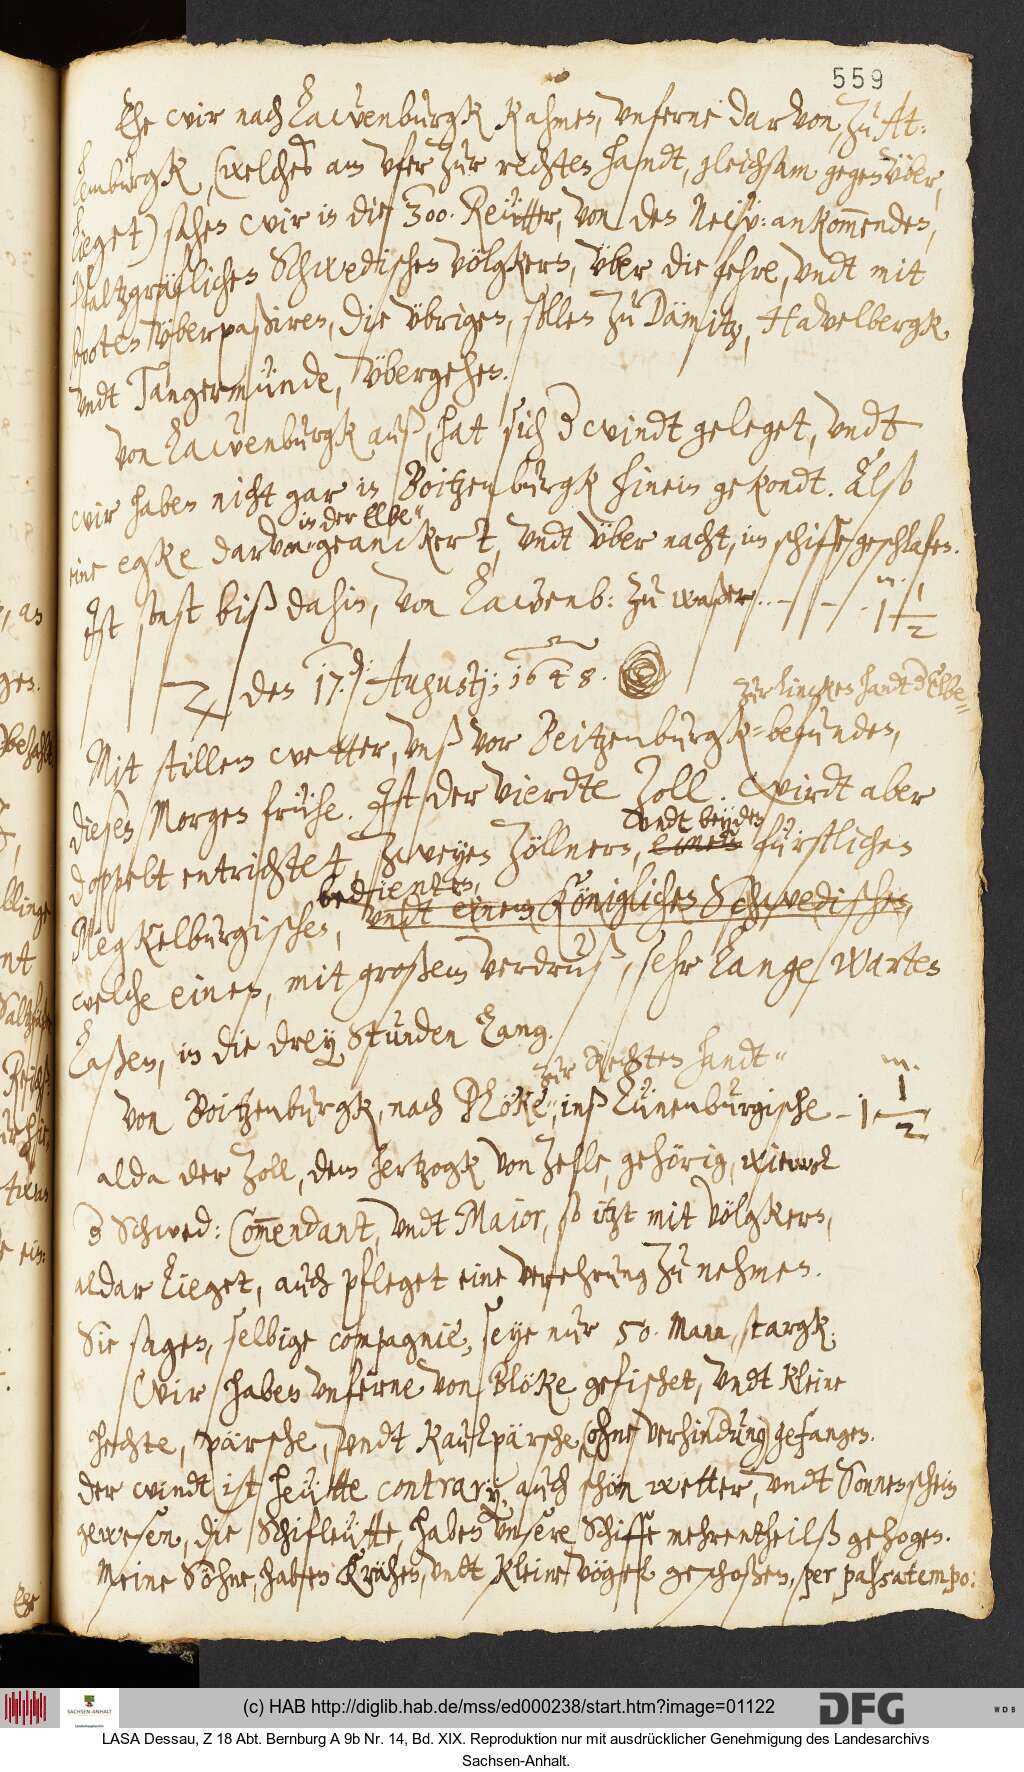 559
Ehe wir nach Lawenburgk kahmen, unferne darvon, zu At-
lemburgk, (welches am ufer zur rechten handt, gleichsam gegenüber,
lieget) sahen wir in die 300. Reütter, von den Neẅ: ankom̅enden,
Pfaltzgräflichen Schwedischen völgkern, über die fehre, undt mit
booten überpaßiren, die übrigen, sollen zu Dämitz, Havelbergk
undt Tangermünde, übergehen.
Von Lawenburgk auß, hat sich der windt geleget, undt
wir haben nicht gar in Boitzenburgk hinein gekondt. Alß
in der Elbe"
eine egke darvon geanckert, undt über nacht, im schiffe geschlafen.
m.
Ist sonst biß dahin, von Lawenb: zu waßer.. - - - 1 1/2
den 17.d: Augustj; 1648.
zur lincken handt der Elbe"
Mit stillem wetter, unß vor Boitzenburgk befunden,
diesen Morgen frühe. Ist der vierdte Zoll. Wirdt aber
undt beyden
doppelt entrichtet, zweyen Zöllnern, einem fürstlichen
bedienten,
Megkelburgischen, undt einem Königlichen Schwedischen,
welche einen, mit großem verdruß, sehr lange warten
laßen, in die drey Stunden lang.
zur Rechten handt"
m.
Von Boitzenburgk, nach Blöke, inß Lünenburgische - 1 1/2
alda der Zoll, dem hertzogk von Zelle, gehörig, wiewol
der Schwed: Com̅endant, undt Major, so itzt mit völgkern,
aldar lieget, auch pfleget eine verehrung zu nehmen.
Sie sagen, selbige compagnie, seye nur 50. Mann, stargk.
Wir haben unferne von Blöke gefischet, undt kleine
hechte, pärsche, undt kaulpärsche, (ohne verhindung) gefangen.
der windt ist heütte contrary, auch schön wetter, undt Sonnenschein
gewesen, die Schifleütte, haben unsere Schiffe mehrentheilß gezogen.
Meine Söhne, haben Krähen, undt kleine vögel geschoßen, per passatempo:
(c) HAB http://diglib.hab.de/mss/ed000238/start.htm?image=01122
DFG
WDB
SACHSEN-ANHALT
LASA Dessau, Z 18 Abt. Bernburg A 9b Nr. 14, Bd. XIX. Reproduktion nur mit ausdrücklicher Genehmigung des Landesarchivs
Sachsen-Anhalt.